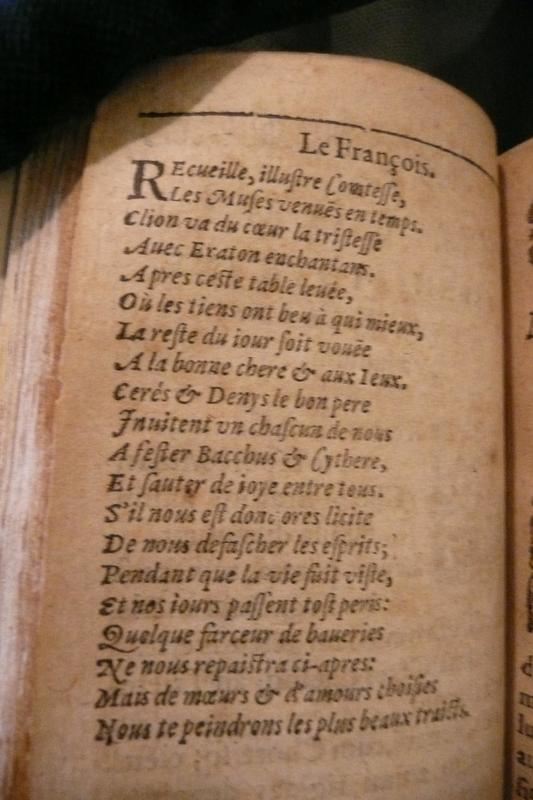 Le François.
REcueille, illuſtre Comteſſe,
Les Muſes venuës en temps.
Clion va du cœur la triſteſſe
Auec Eraton enchantans.
Apres ceſte table leuée,
Où les tiens ont beu à qui mieux,
La reſte du iour ſoit vouée
A la bonne chere & aux Ieux.
Cerés & Denys le bon pere
Inuitent vn chaſcun de nous
A feſter Bacchus & Cythere,
Et ſauter de ioye entre tous.
S'il nous eſt donc ores licite
De nous defaſcher les eſprits;
Pendant que la vie fuit viſte,
Et nos iours paſſent toſt peris:
Quelque farceur de baueries
Ne nous repaiſtra ci-apres:
Mais de mœurs & d'amours choiſies
Nous te peindrons les plus beaux traicts.